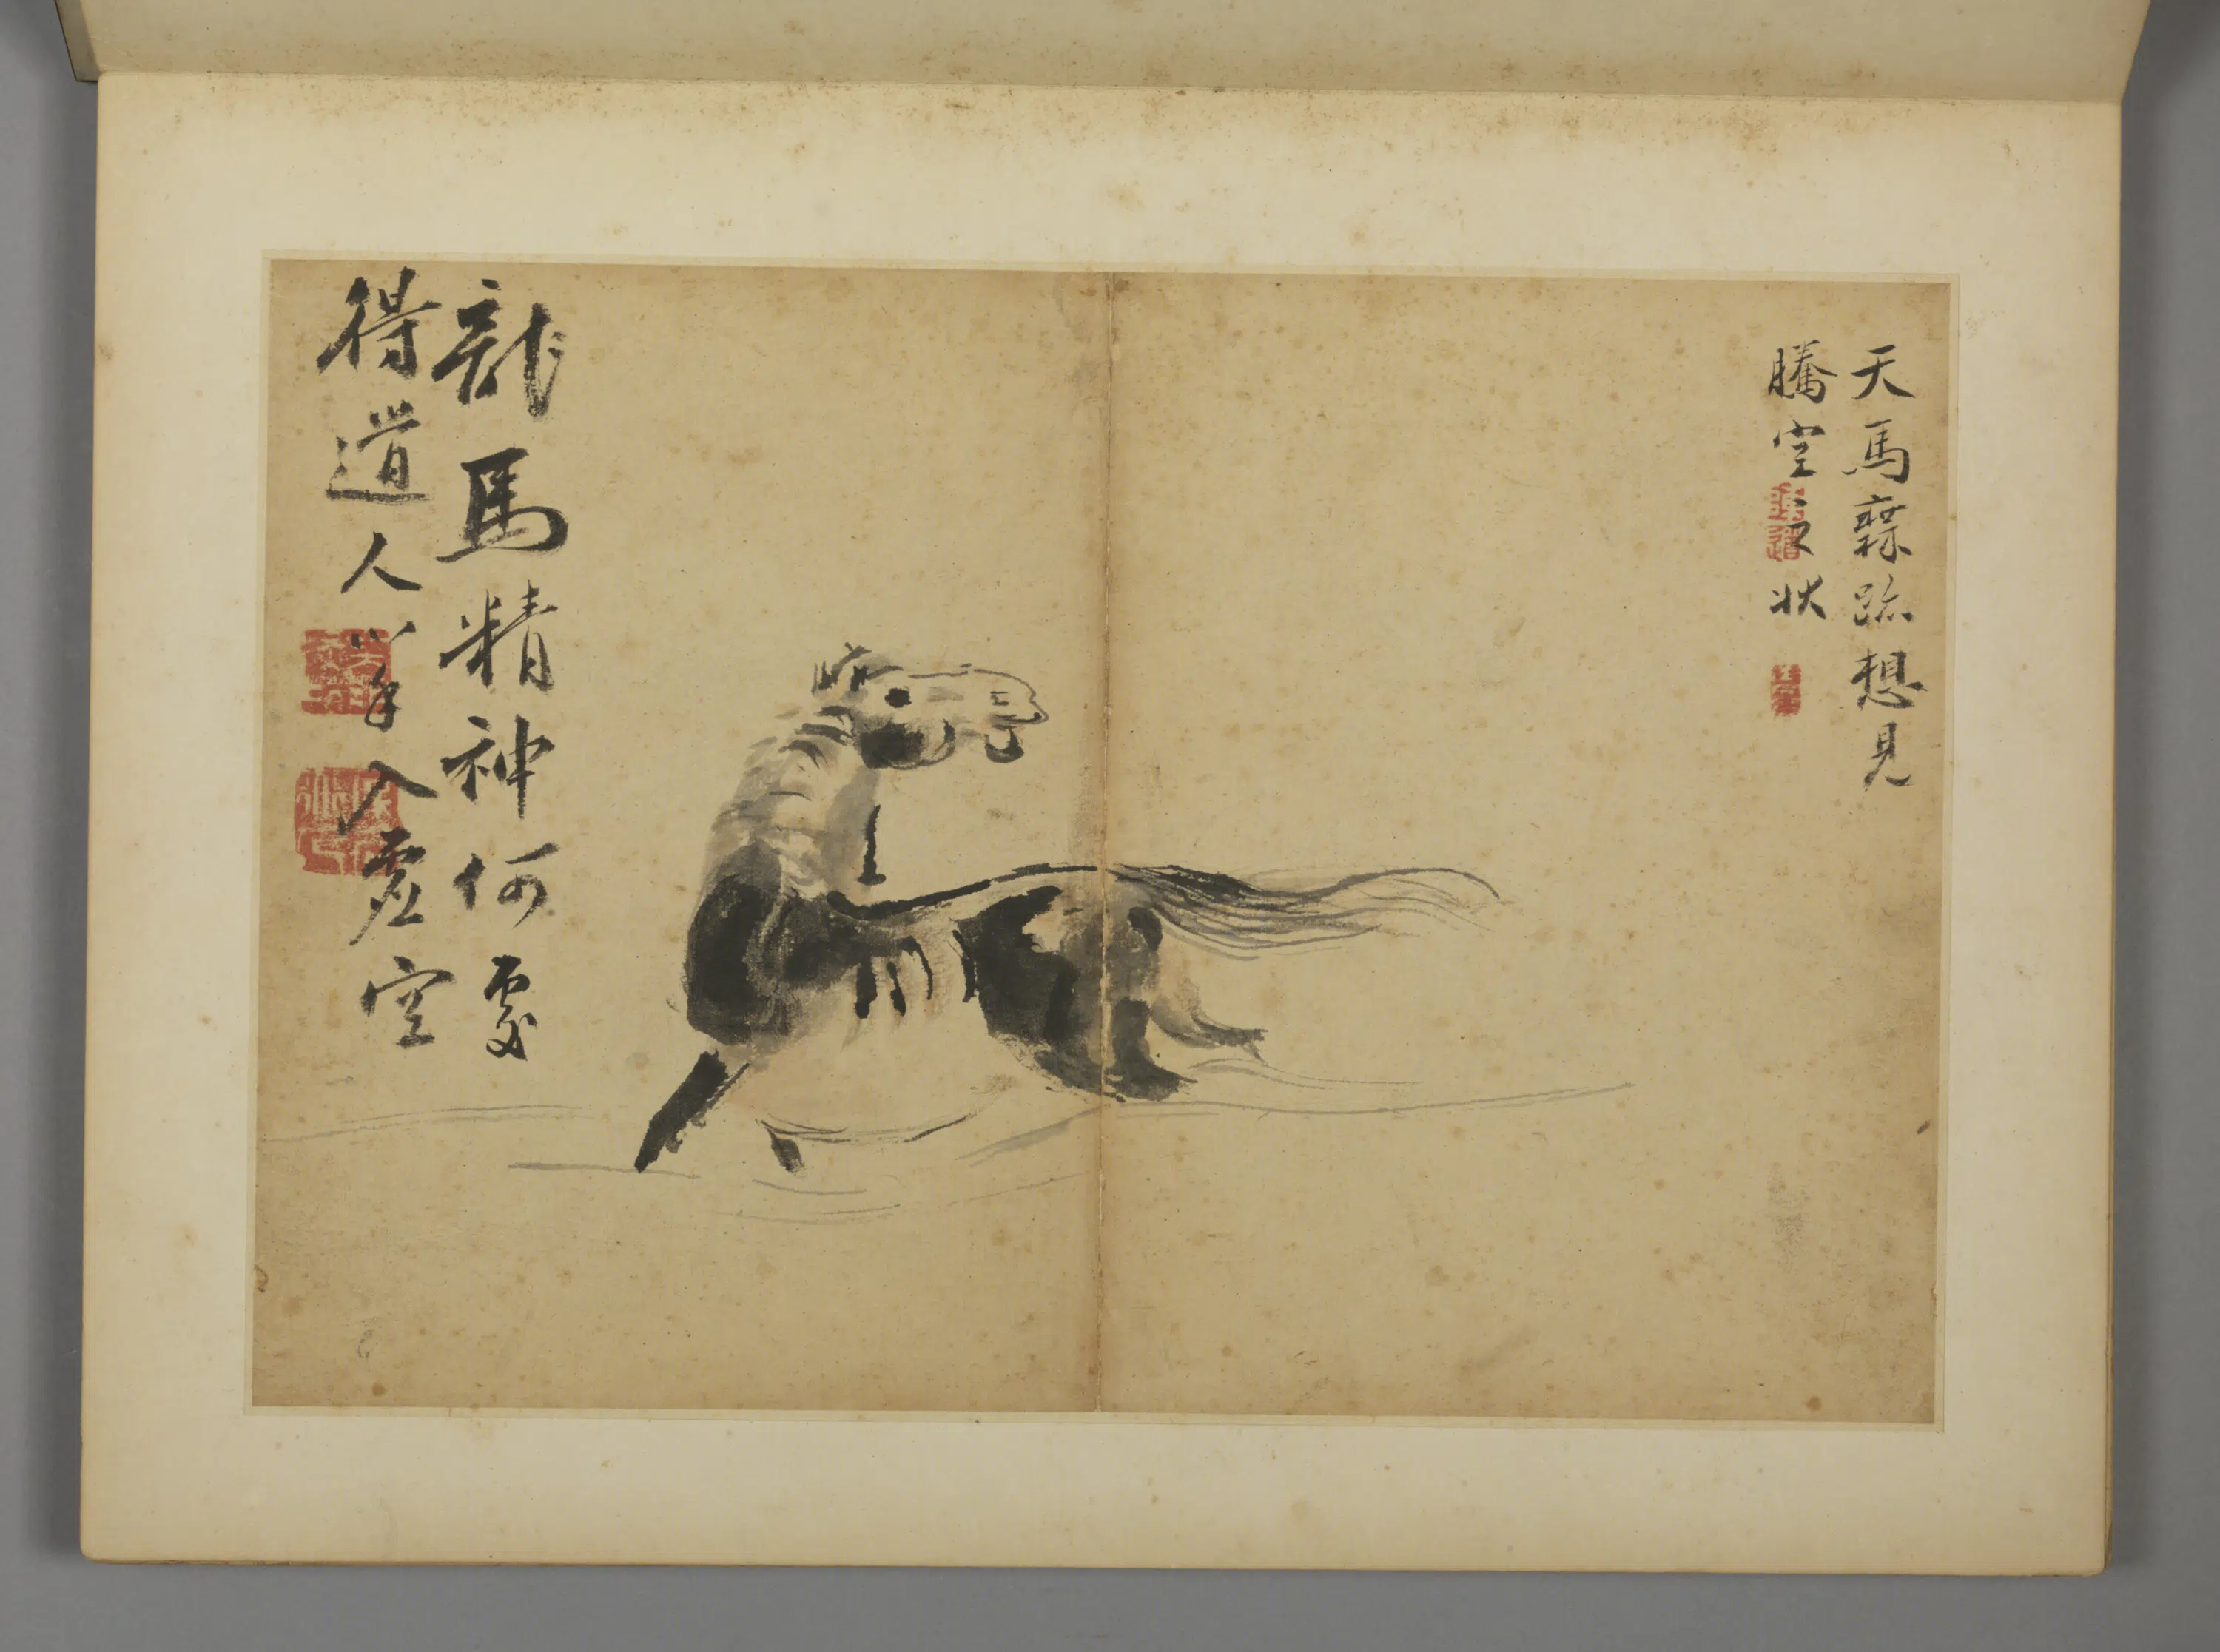 天馬無跡想見
騰空之狀
龍馬精神何處
得道人入虛空